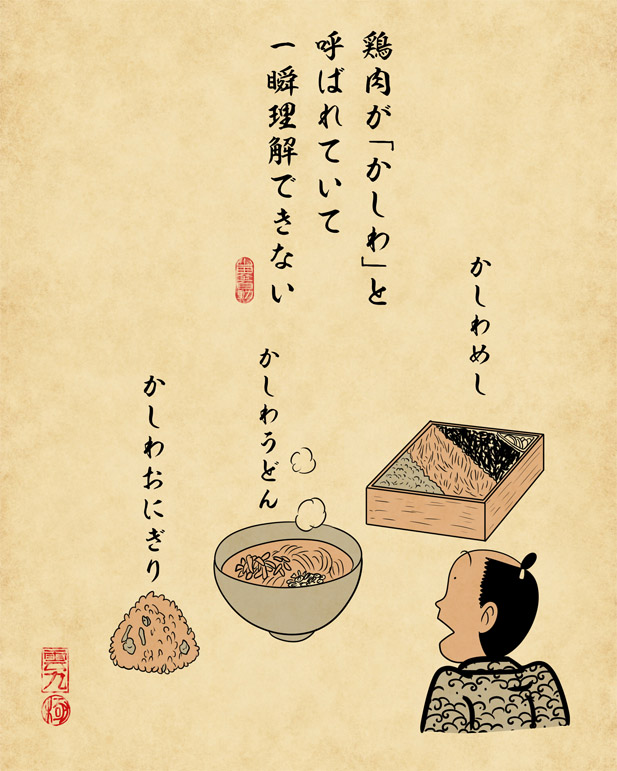 鶏肉が「かしわ」と
呼ばれていて
一瞬理解できない
かしわめし
かしわうどん
かしわおにぎり